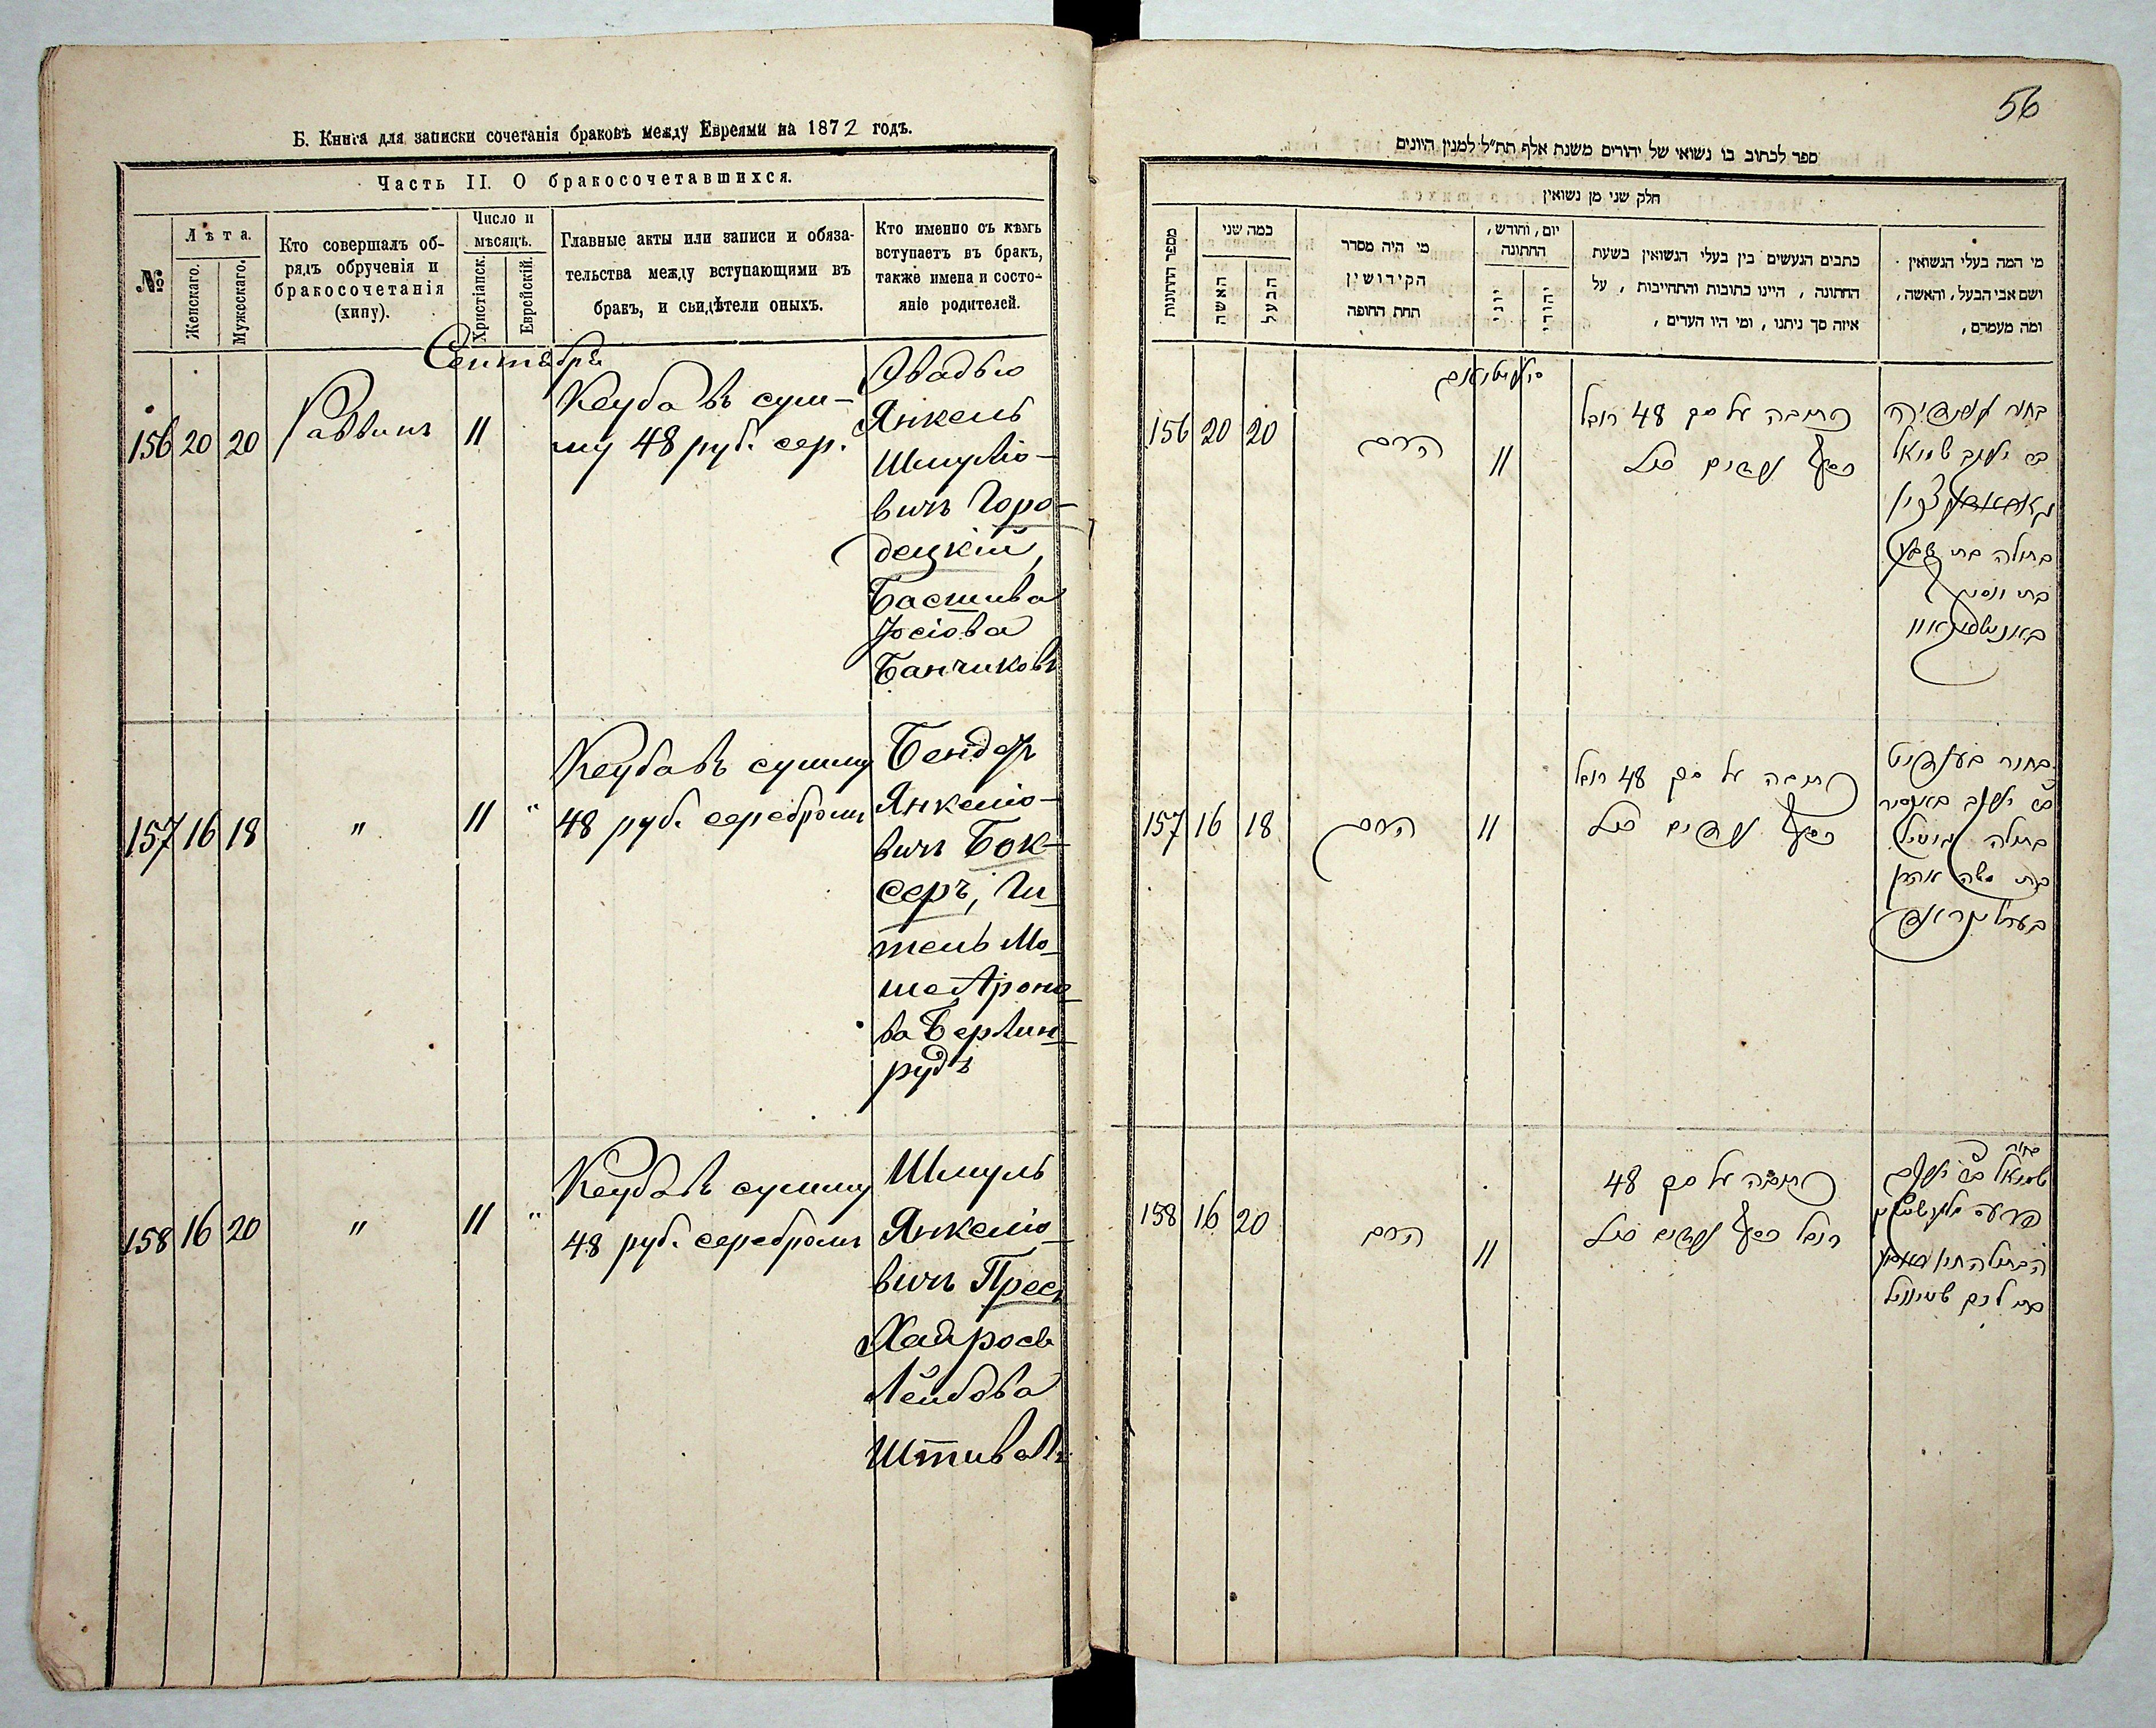 Б. Книга для записки сочетанія браковъ между Евреями на 1872 годъ.
Часть II. О бракосочетавшихся.
№
Лѣта.
Женскаго.
Мужескаго.
Кто совершалъ об-
рядъ обрученія и
бракосочетанія
(хипу).
Число и
мѣсяцъ.
Христіанск.
Еврейскій.
Главные акты или записи и обяза-
тельства между вступающими въ
бракъ, и свидѣтели оныхъ.
Кто именно съ кѣмъ
вступаетъ въ бракъ,
также имена и состо-
яніе родителей.
Сентября
156 20 20 Раввинъ 11
Кеуба въ сум-
му 48 руб. сер.
Овадью
Янкель
Шмулю-
вичъ Горо-
децкій,
Басшива
Іосіова
Банчиковъ
157 16 18 " 11 "
Кеуба въ сумму
48 руб. серебромъ
Бендер
Янкелю-
вичъ Бок-
серъ, Ги-
тель Мо-
ше Ароно-
ва Берлин-
рудъ
158 16 20 " 11 "
Кеуба въ сумму
48 руб. серебромъ
Шмуль
Янкелю-
вичъ Прес
Хайрось
Лейбова
Штиваль
56
ספר לכתוב בו נשואי של יהודים משנת אלף תת״ל למנין היונים
חלק שני מן נשואין
מספר החתונות
כמה שני
האשה
הבעל
מי היה מסדר
הקידושין
תחת החופה
יום, וחודש,
החתונה
יוני
יהודי
כתבים הנעשים בין בעלי הנשואין בשעת
החתונה, היינו כתובות והתחייבות, על
איזה סך ניתנו, ומי היו העדים,
מי המה בעלי הנשואין
ושם אבי הבעל, והאשה,
ומה מעמדם,
156 20 20 הרב 11
כתובה על סך 48 רובל
כסף
בחור
בן יעקב שמואל
בתולה בת שבע
בת יוסף
157 16 18 הרב 11
כתובה על סך 48 רובל
כסף
בחור
בן יעקב
בתולה גיטיל
בת משה אהרן
158 16 20 הרב 11
כתובה על סך 48
רובל כסף
בחור
שמואל בן יעקב
הבתולה
בת ליב שטיוויל